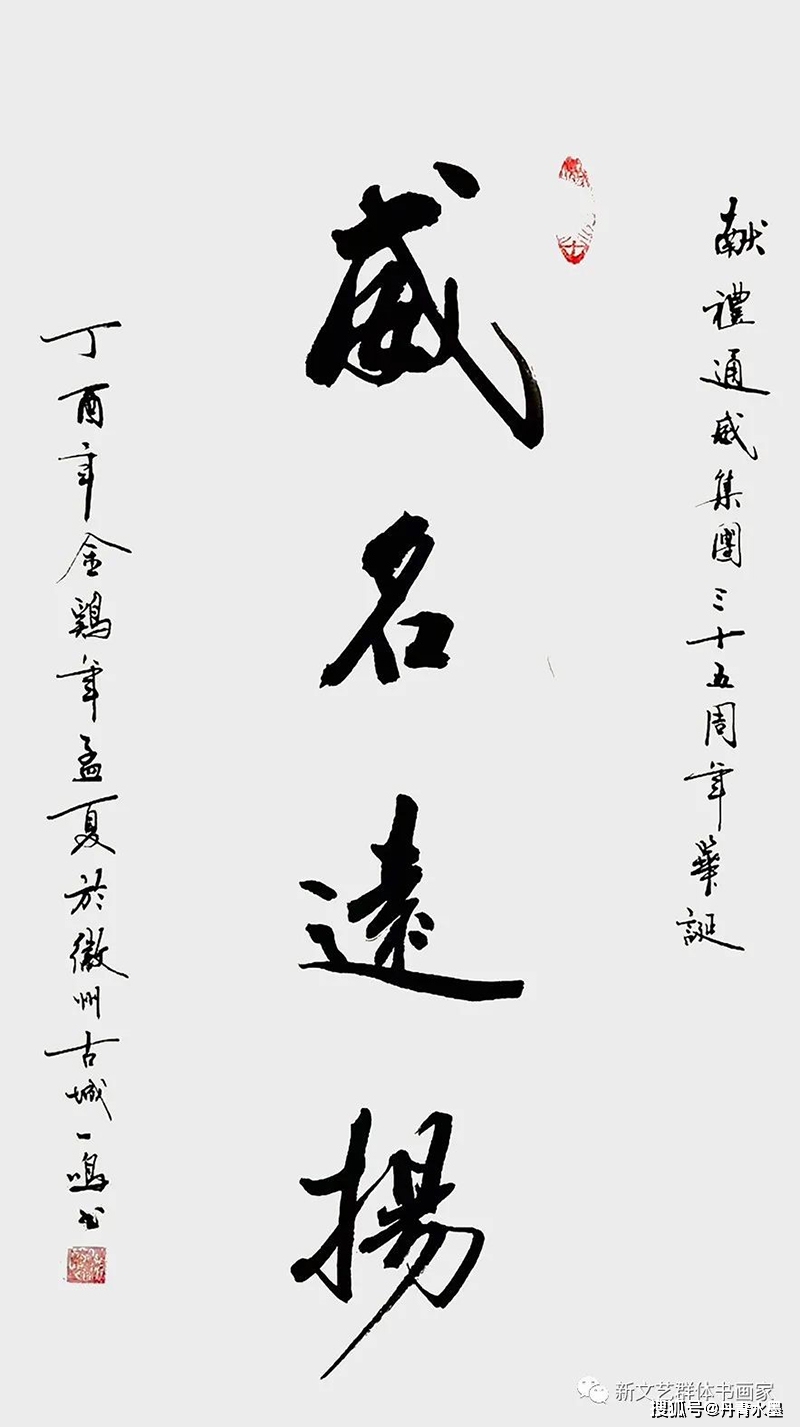 献禮通威集團三十五周年華誕
威名遠揚
丁酉年金鷄年孟夏於徽州古城一鳴书
新文艺群体书画家
搜狐号@丹青水墨